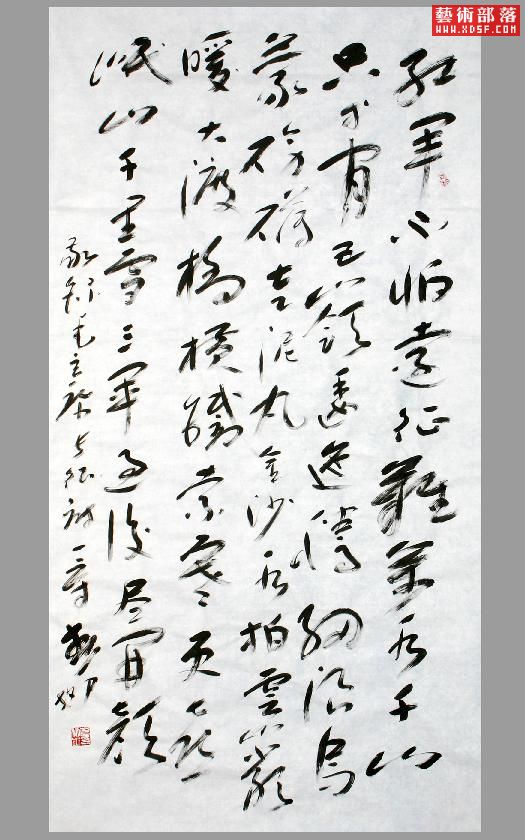 藝術部落
WWW.XDSF.COM
红軍不怕遠征難萬水千山
只等閑五岭逶迤腾細浪烏
蒙磅礴走泥丸金沙水拍雲崖
暖大渡橋横鐵索寒更喜
岷山千里雪三軍過後尽開顔
敬録毛主席長征詩一首